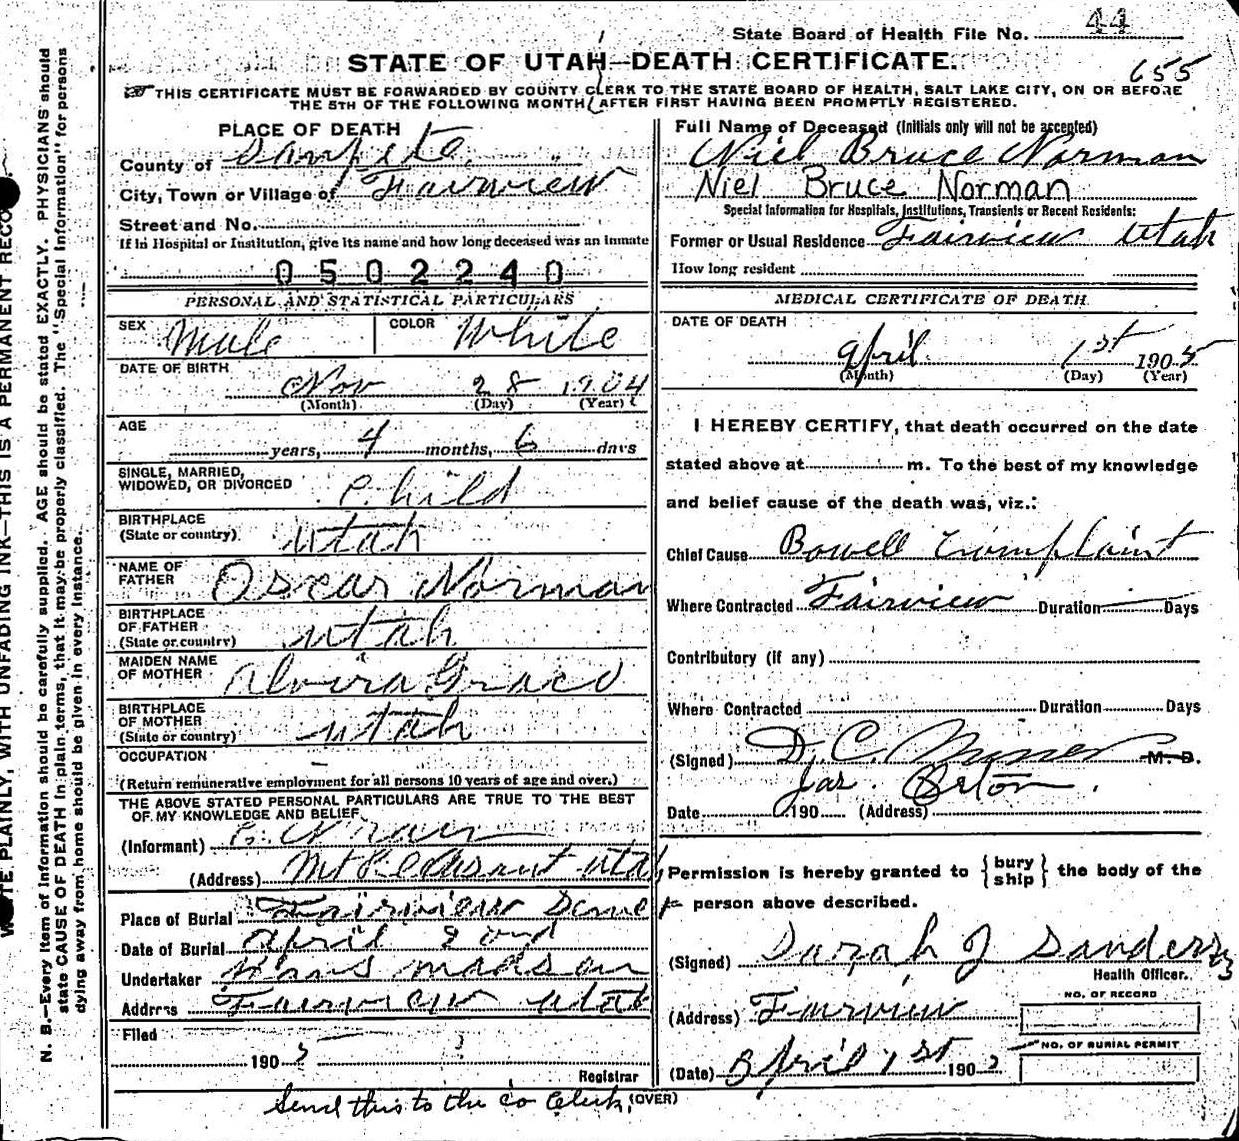 State Board of Health File No. 44
STATE OF UTAH—DEATH CERTIFICATE.
655
THIS CERTIFICATE MUST BE FORWARDED BY COUNTY CLERK TO THE STATE BOARD OF HEALTH, SALT LAKE CITY, ON OR BEFORE
THE 5TH OF THE FOLLOWING MONTH AFTER FIRST HAVING BEEN PROMPTLY REGISTERED.
PLACE OF DEATH
County of Sanpete
City, Town or Village of Fairview
Street and No.
If in Hospital or Institution, give its name and how long deceased was an inmate
0502240
PERSONAL AND STATISTICAL PARTICULARS
SEX Male COLOR White
DATE OF BIRTH
Nov 28 1904
(Month) (Day) (Year)
AGE
years, 4 months, 6 days
SINGLE, MARRIED,
WIDOWED, OR DIVORCED Child
BIRTHPLACE
(State or country) Utah
NAME OF
FATHER Oscar Norman
BIRTHPLACE
OF FATHER
(State or country) Utah
MAIDEN NAME
OF MOTHER
BIRTHPLACE
OF MOTHER
(State or country) Utah
OCCUPATION
(Return remunerative employment for all persons 10 years of age and over.)
THE ABOVE STATED PERSONAL PARTICULARS ARE TRUE TO THE BEST
OF MY KNOWLEDGE AND BELIEF
(Informant)
(Address) Mt Pleasant Utah
Place of Burial Fairview
Date of Burial April 2ond
Undertaker Hans Madsen
Address Fairview Utah
Filed
190 5
Registrar
Full Name of Deceased (Initials only will not be accepted)
Niel Bruce Norman
Niel Bruce Norman
Special Information for Hospitals, Institutions, Transients or Recent Residents:
Former or Usual Residence Fairview Utah
How long resident
MEDICAL CERTIFICATE OF DEATH
DATE OF DEATH
April 1st 1905
(Month) (Day) (Year)
I HEREBY CERTIFY, that death occurred on the date
stated above at m. To the best of my knowledge
and belief cause of the death was, viz.:
Chief Cause Bowell Complaint
Where Contracted Fairview Duration Days
Contributory (if any)
Where Contracted Duration Days
(Signed) D. C. M. D.
Date 190 (Address)
Permission is hereby granted to {bury ship} the body of the
person above described.
(Signed) Sarah J Sanders
Health Officer.
(Address) Fairview
NO. OF RECORD
NO. OF BURIAL PERMIT
(Date) April 1st 190
Send this to the Co Clerk. (OVER)
N. B.—Every item of information should be carefully supplied. AGE should be stated EXACTLY. PHYSICIANS should
state CAUSE OF DEATH in plain terms, that it may be properly classified. The "Special Information" for persons
dying away from home should be given in every instance.
PLAINLY, WITH UNFADING INK—THIS IS A PERMANENT